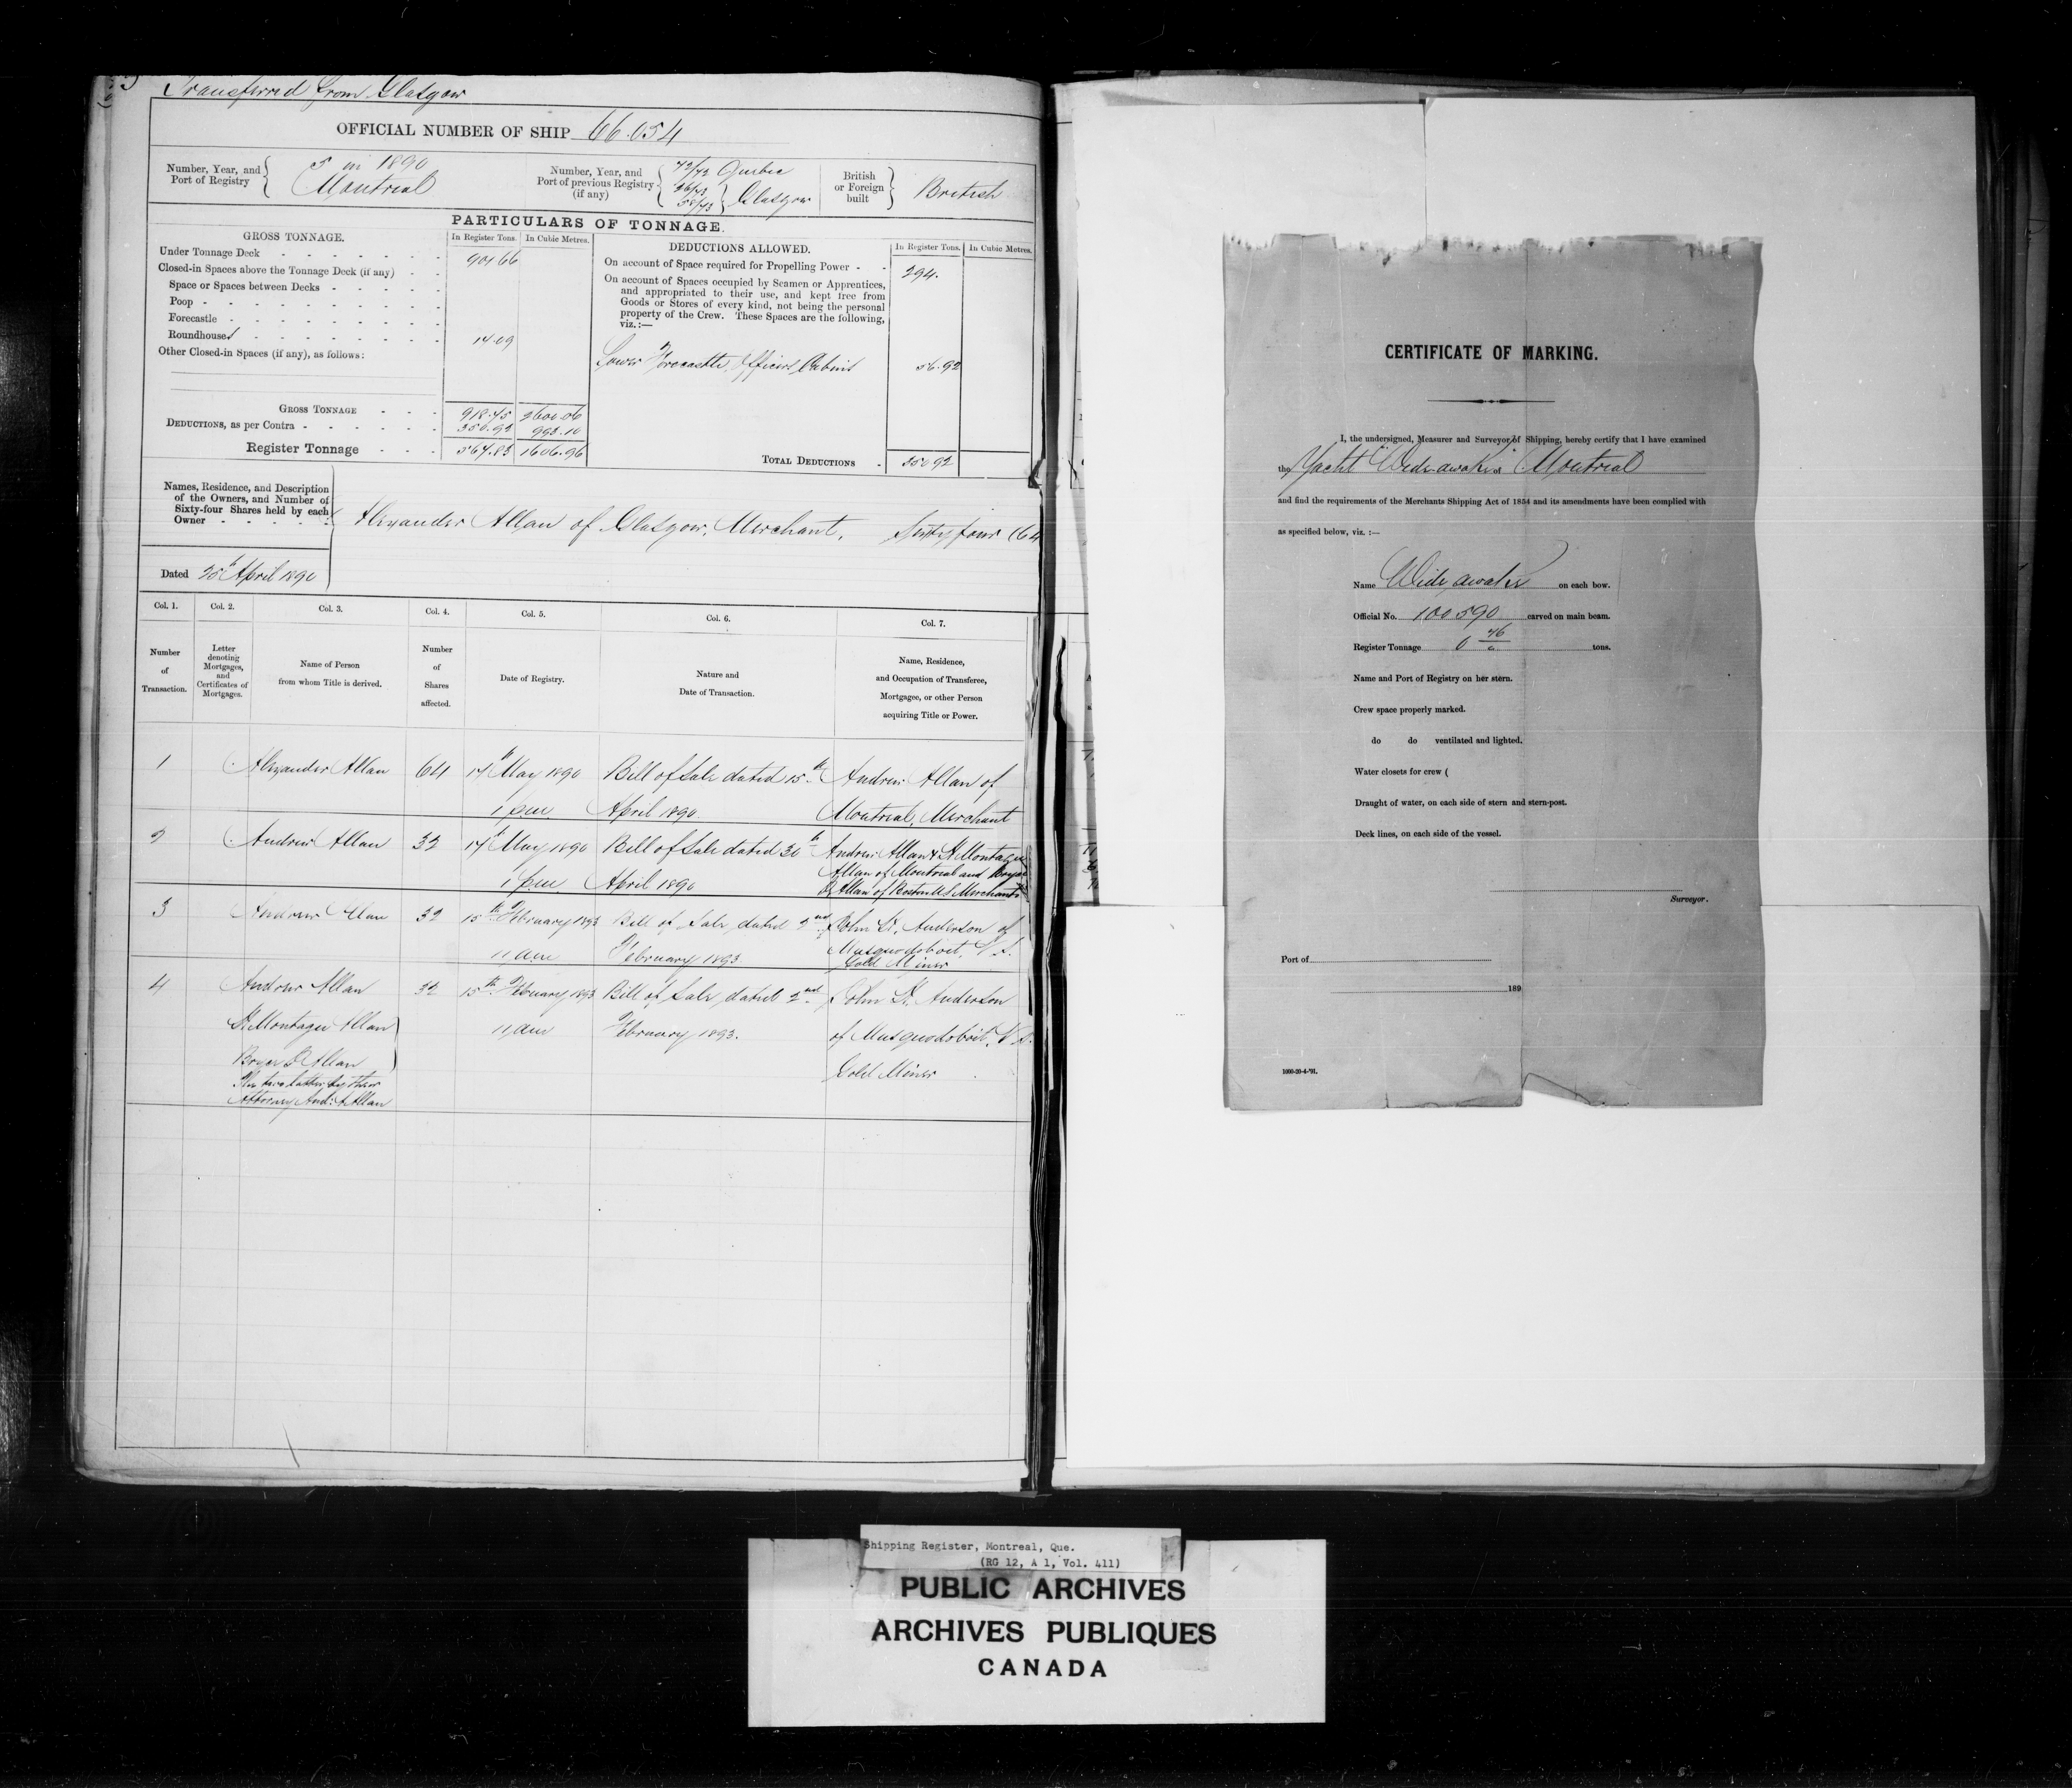 Transferred from Glasgow
OFFICIAL NUMBER OF SHIP 66.054
Number, Year, and Port of Registry { 5 in 1890 Montreal
Number, Year, and Port of previous Registry (if any) { 42/72 Quebec 26/73 58/73 } Glasgow
British or Foreign built } British
PARTICULARS OF TONNAGE.
GROSS TONNAGE. In Register Tons. In Cubic Metres.
Under Tonnage Deck 904 66
Closed-in Spaces above the Tonnage Deck (if any)
Space or Spaces between Decks
Poop
Forecastle
Roundhouse 14.09
Other Closed-in Spaces (if any), as follows:
GROSS TONNAGE 918.75 2600.06
DEDUCTIONS, as per Contra 350.92 993.10
Register Tonnage 567.83 1606.96
DEDUCTIONS ALLOWED. In Register Tons. In Cubic Metres.
On account of Space required for Propelling Power 294.
On account of Spaces occupied by Seamen or Apprentices,
and appropriated to their use, and kept free from
Goods or Stores of every kind, not being the personal
property of the Crew. These Spaces are the following,
viz.:—
Lower Forecastle, Officers Cabins 56.92
TOTAL DEDUCTIONS 350 92
Names, Residence, and Description
of the Owners, and Number of
Sixty-four Shares held by each
Owner
Alexander Allan of Glasgow, Merchant, Sixty four (64
Dated 25th April 1890
Col. 1. Col. 2. Col. 3. Col. 4. Col. 5. Col. 6. Col. 7.
Number of Transaction.
Letter denoting Mortgages, and Certificates of Mortgages.
Name of Person from whom Title is derived.
Number of Shares affected.
Date of Registry.
Nature and Date of Transaction.
Name, Residence, and Occupation of Transferee, Mortgagee, or other Person acquiring Title or Power.
1 Alexander Allan 64 14th May 1890 Bill of Sale dated 15th Andrew Allan of
1 pm April 1890. Montreal, Merchant
2 Andrew Allan 32 14th May 1890 Bill of Sale dated 30th Andrew Allan & H Montagu
1 pm April 1890 Allan of Montreal and Bryce
Allan of Boston U.S. Merchants
3 Andrew Allan 32 15th February 1893 Bill of Sale, dated 2nd John H. Anderson of
11 am February 1893 Musquodoboit, N.S.
Gold Miner
4 Andrew Allan 32 15th February 1893 Bill of Sale, dated 2nd John H. Anderson
H Montagu Allan 11 am February 1893. of Musquodoboit, N.S.
Bryce Allan Gold Miner
The two latter by their
Attorney And: A Allan
CERTIFICATE OF MARKING.
I, the undersigned, Measurer and Surveyor of Shipping, hereby certify that I have examined
the Yacht Wide-awake Montreal
and find the requirements of the Merchants Shipping Act of 1854 and its amendments have been complied with
as specified below, viz. :—
Name Wide awake on each bow.
Official No. 100590 carved on main beam.
Register Tonnage 0 46 tons.
Name and Port of Registry on her stern.
Crew space properly marked.
do do ventilated and lighted.
Water closets for crew (
Draught of water, on each side of stern and stern-post.
Deck lines, on each side of the vessel.
Surveyor.
Port of
189
1000-20-4-'91.
Shipping Register, Montreal, Que.
(RG 12, A 1, Vol. 411)
PUBLIC ARCHIVES
ARCHIVES PUBLIQUES
CANADA